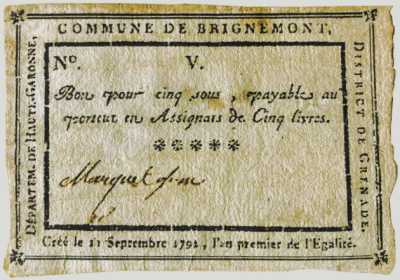 COMMUNE DE BRIGNEMONT,
DÉPARTEM. DE HAUTE-GARONNE,
DISTRICT DE GRENADE.
No. V.
Bon pour cinq sous, payable au
porteur en Assignats de Cinq livres.
Créé le 11 Septembre 1792, l'an premier de l'Egalité.